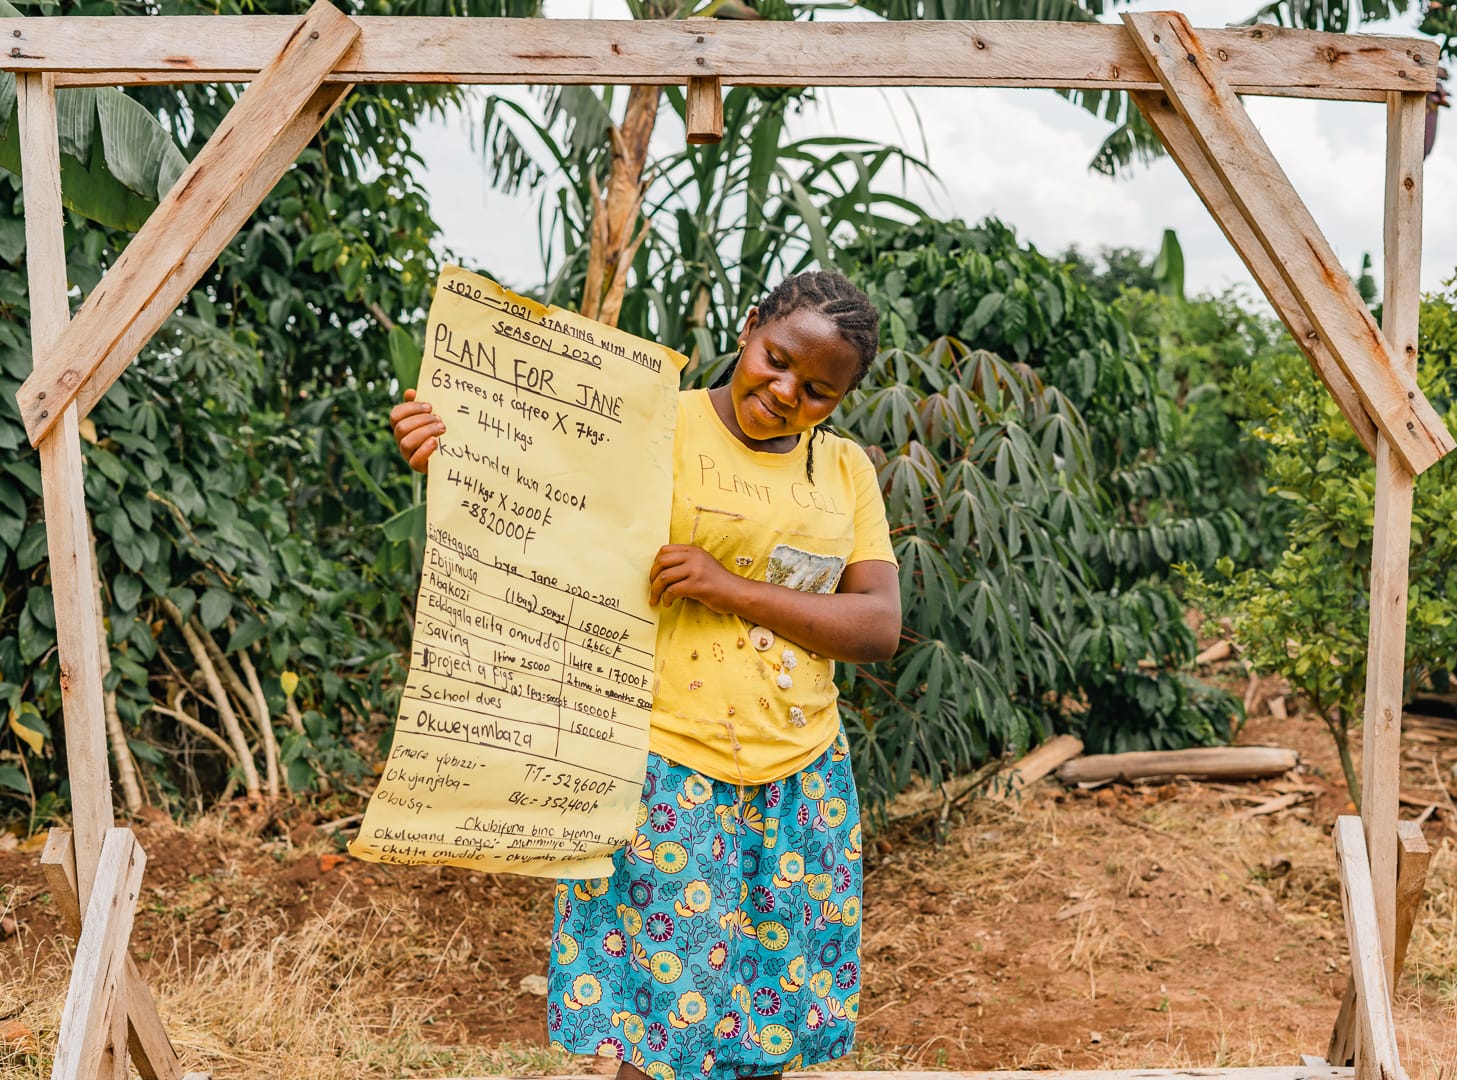 2020-2021 STARTING WITH MAIN
SEASON 2020
PLAN FOR JANE
63 trees of coffee X 7kgs.
= 441kgs
Kutunda kwa 2000/=
441kgs X 2000/=
=882000/=
Ebyetagisa bya Jane 2020-2021
- Ebijimusa (1bag) 50kgs 150000/=
- Abakozi 12600/=
- Eddagala elita omuddo 1Litre = 17000/=
- Saving 1time 25000 2times in a month=
- Project of pigs 150000/=
- School dues 150000/=
- Okweyambaza
Emere yebizzi-
Okujanjaba-
Obusa-
T.T = 529,600/=
B/C = 352,400/=
Okubifuna bino byonna
Okulwana ennyo:-
- Okutta omuddo -
PLANT CELL